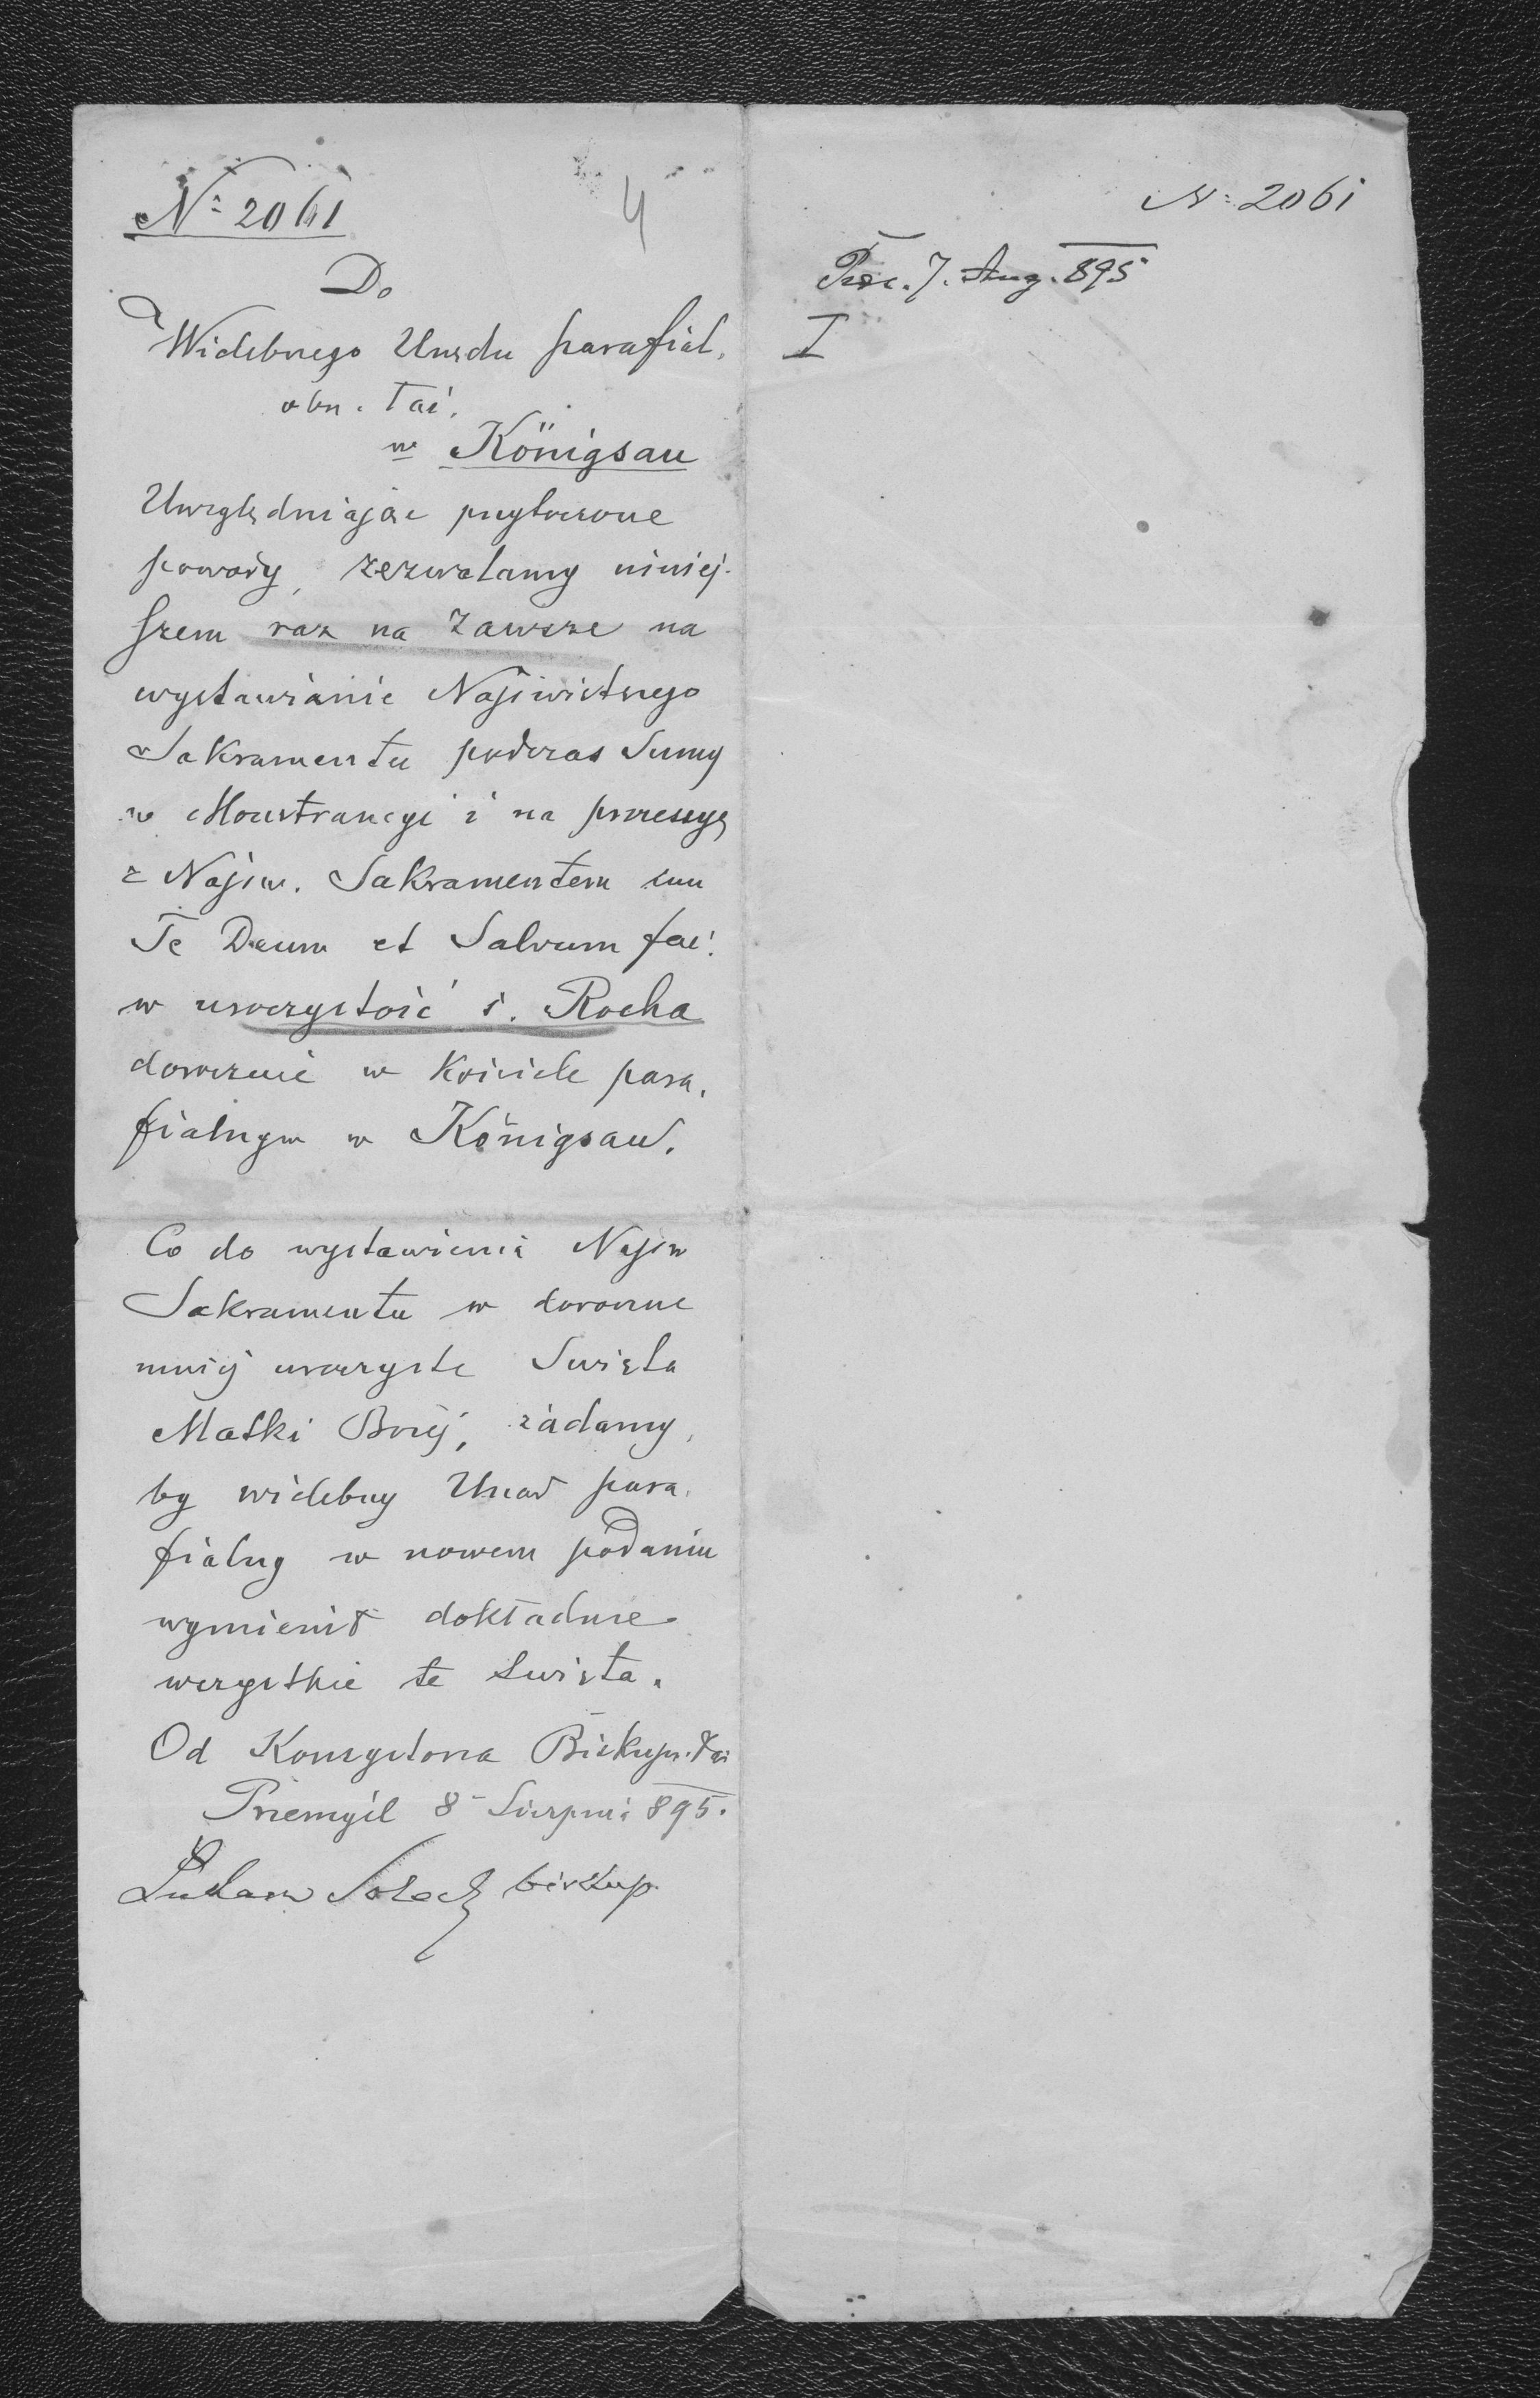 № 2061
4
Do
Wielebnego Urzędu parafial.
obrz. łać.
w Königsau
Uwzględniając przytoczone
powody, zezwalamy niniej-
szem raz na zawsze na
wystawianie Najświętszego
Sakramentu podczas Sumy
w Monstrancyi i na procesyę
z Najśw. Sakramentem cum
Te Deum et Salvum fac!
w uroczystość ś. Rocha
dorocznie w Kościele para-
fialnym w Königsau.
Co do wystawienia Najśw
Sakramentu w doroczne
mniej uroczyste Święta
Matki Bożej, żądamy,
by wielebny Urząd para-
fialny w nowem podaniu
wymienił dokładnie
wszystkie te Święta.
Od Konsystorza Biskup. łać
Przemyśl 8 Sierpnia 895.
Łukasz Solecki biskup
№ 2061
Prae. 7. Aug. 895
I